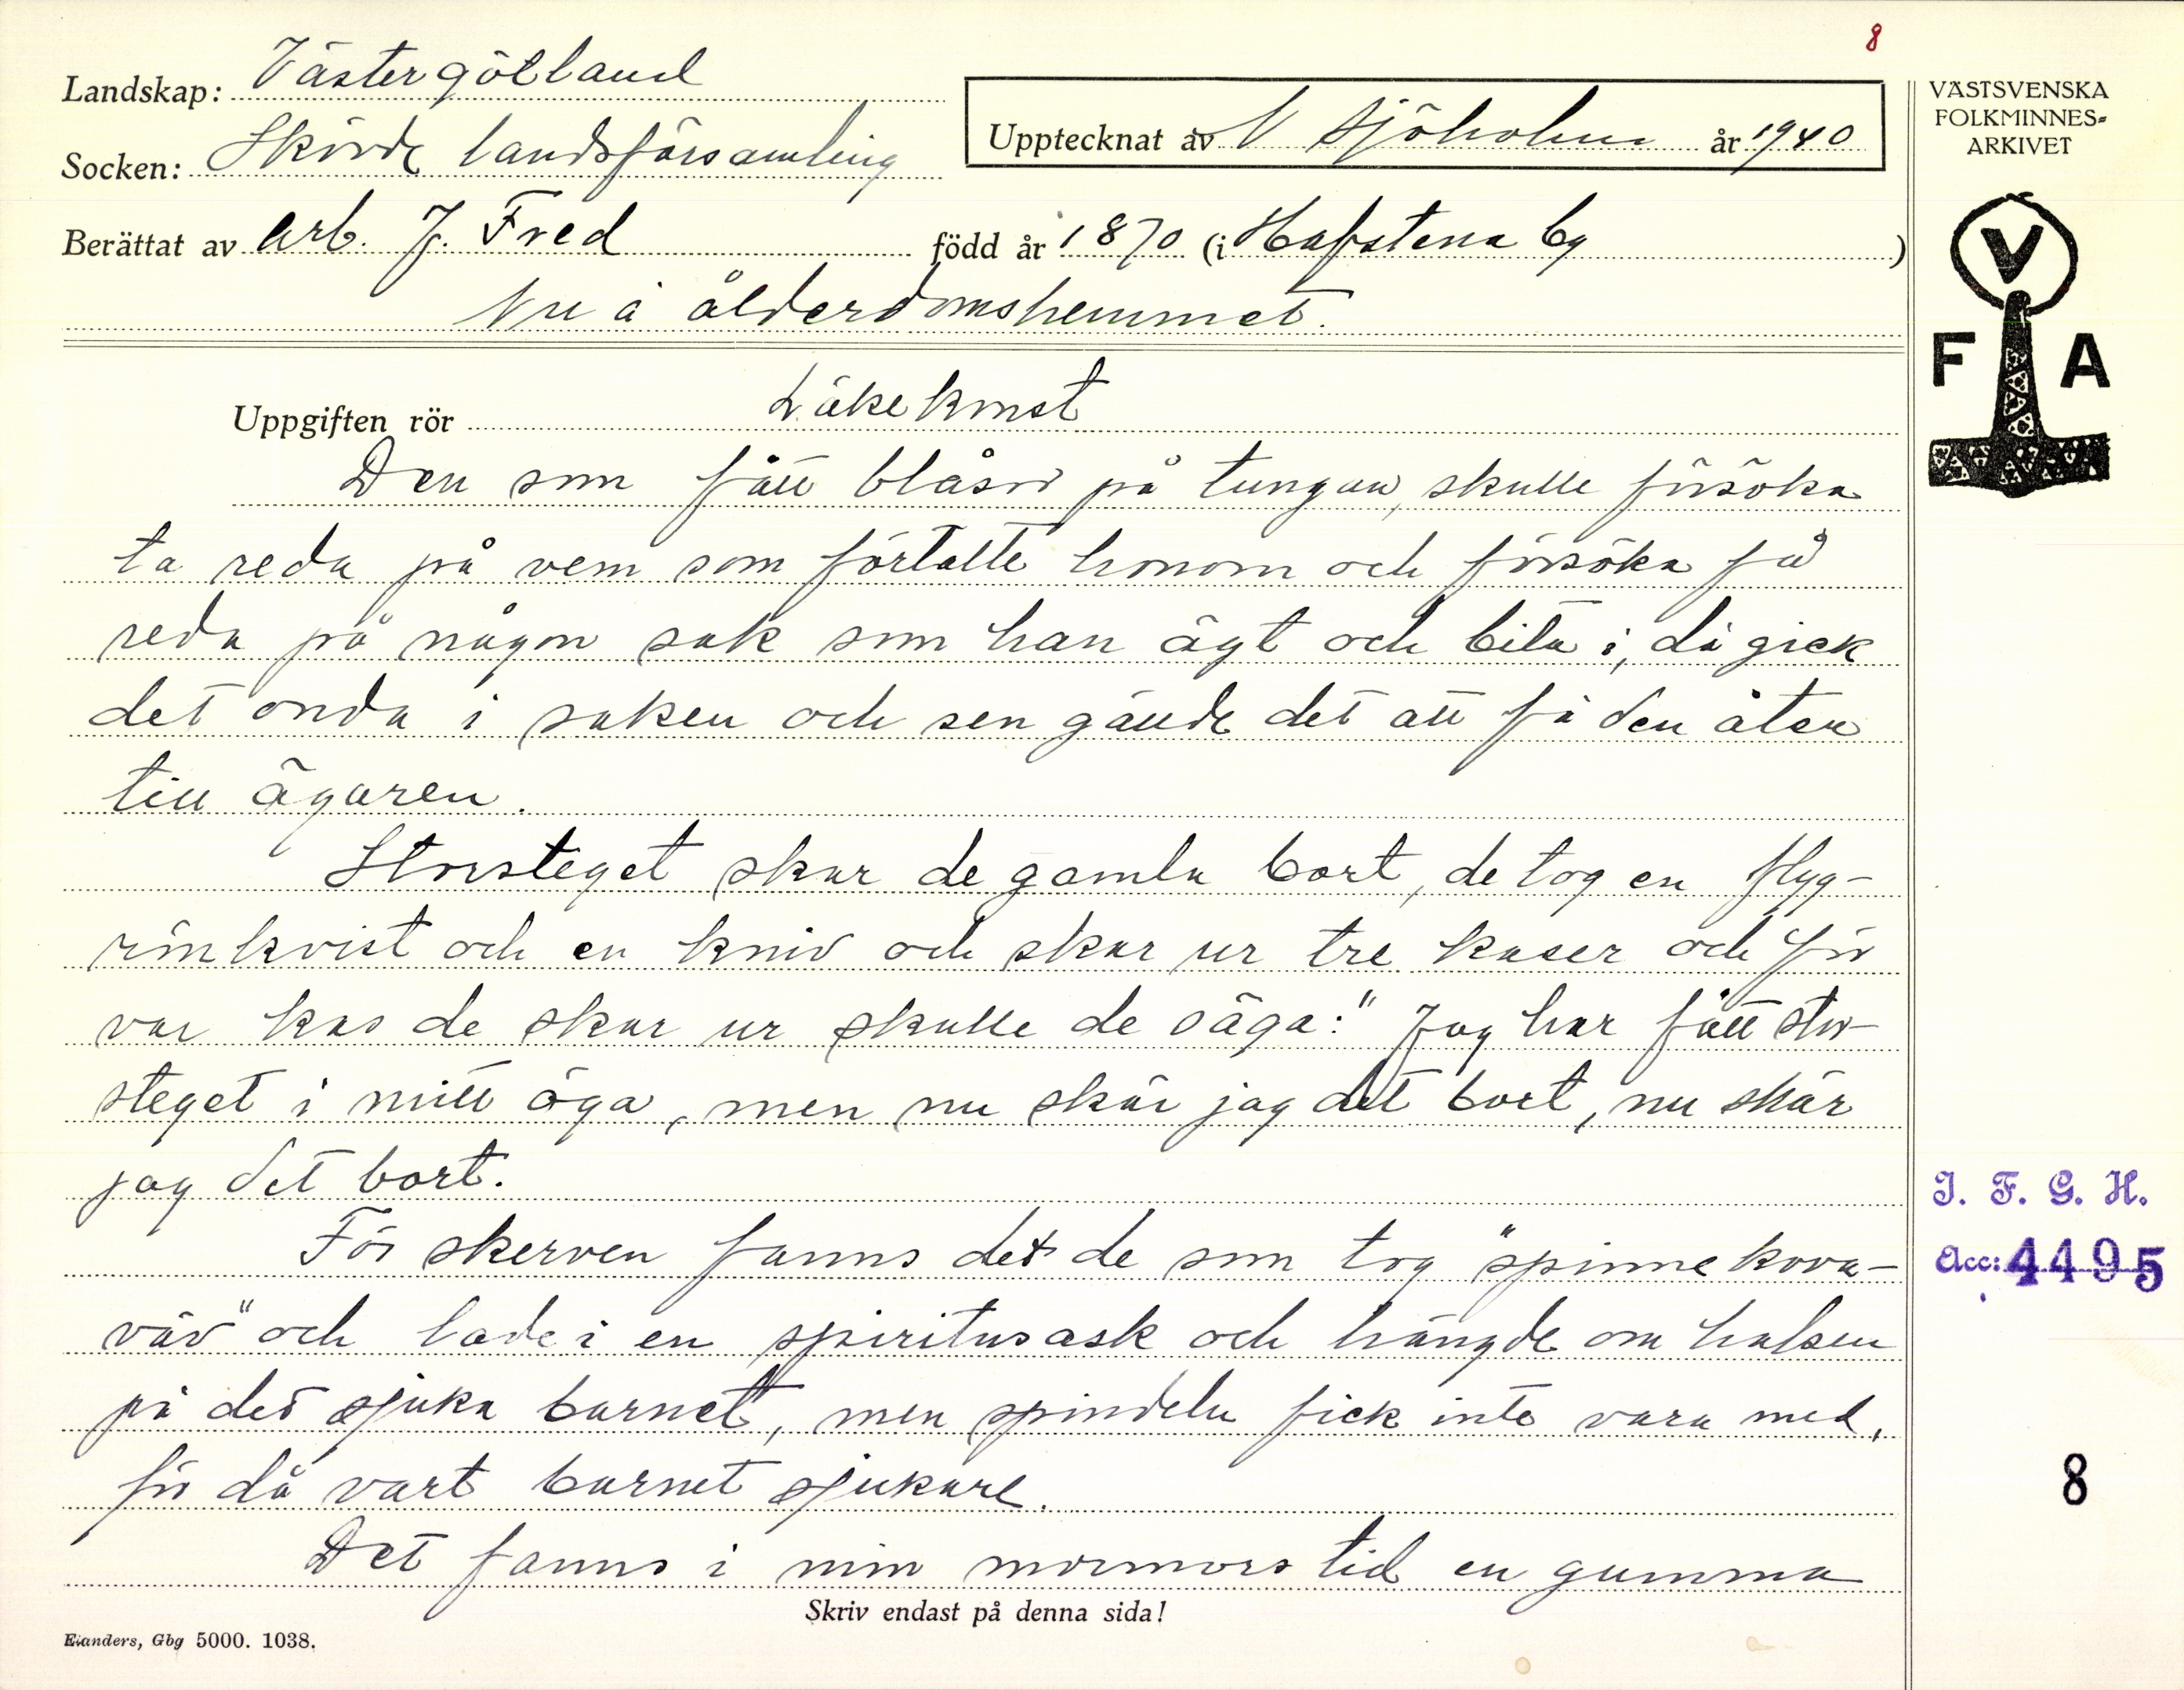 8
Landskap: Västergötland
Socken: Skövde landsförsamling
Upptecknat av N Sjöholm år 1940
Berättat av arb. J. Fred född år 1870 (i Hafstena by)
Nu å ålderdomshemmet.
VÄSTSVENSKA
FOLKMINNES=
ARKIVET
V
F A
Uppgiften rör Läkekonst
Den som fått blåsor på tungan, skulle försöka
ta reda på vem som förtalte honom och försöka få
reda på någon sak som han ägt och bita i, då gick
det onda i saken och sen gällde det att få den åter
till ägaren.
Storsteget skar de gamla bort, de tog en flyg-
rönkvist och en kniv och skar ur tre kaser och för
var kas de skar ur skulle de säga: "Jag har fått stor-
steget i mitt öga, men nu skär jag det bort, nu skär
jag det bort.
För skerven fanns det de som tog "spinnekova-
väv" och lade i en spiritusask och hängde om halsen
på det sjuka barnet, men spindeln fick inte vara med,
för då vart barnet sjukare.
Det fanns i min mormors tid en gumma
Skriv endast på denna sida!
Elanders, Gbg 5000. 1038.
I. F. G. H.
Acc: 4495
8